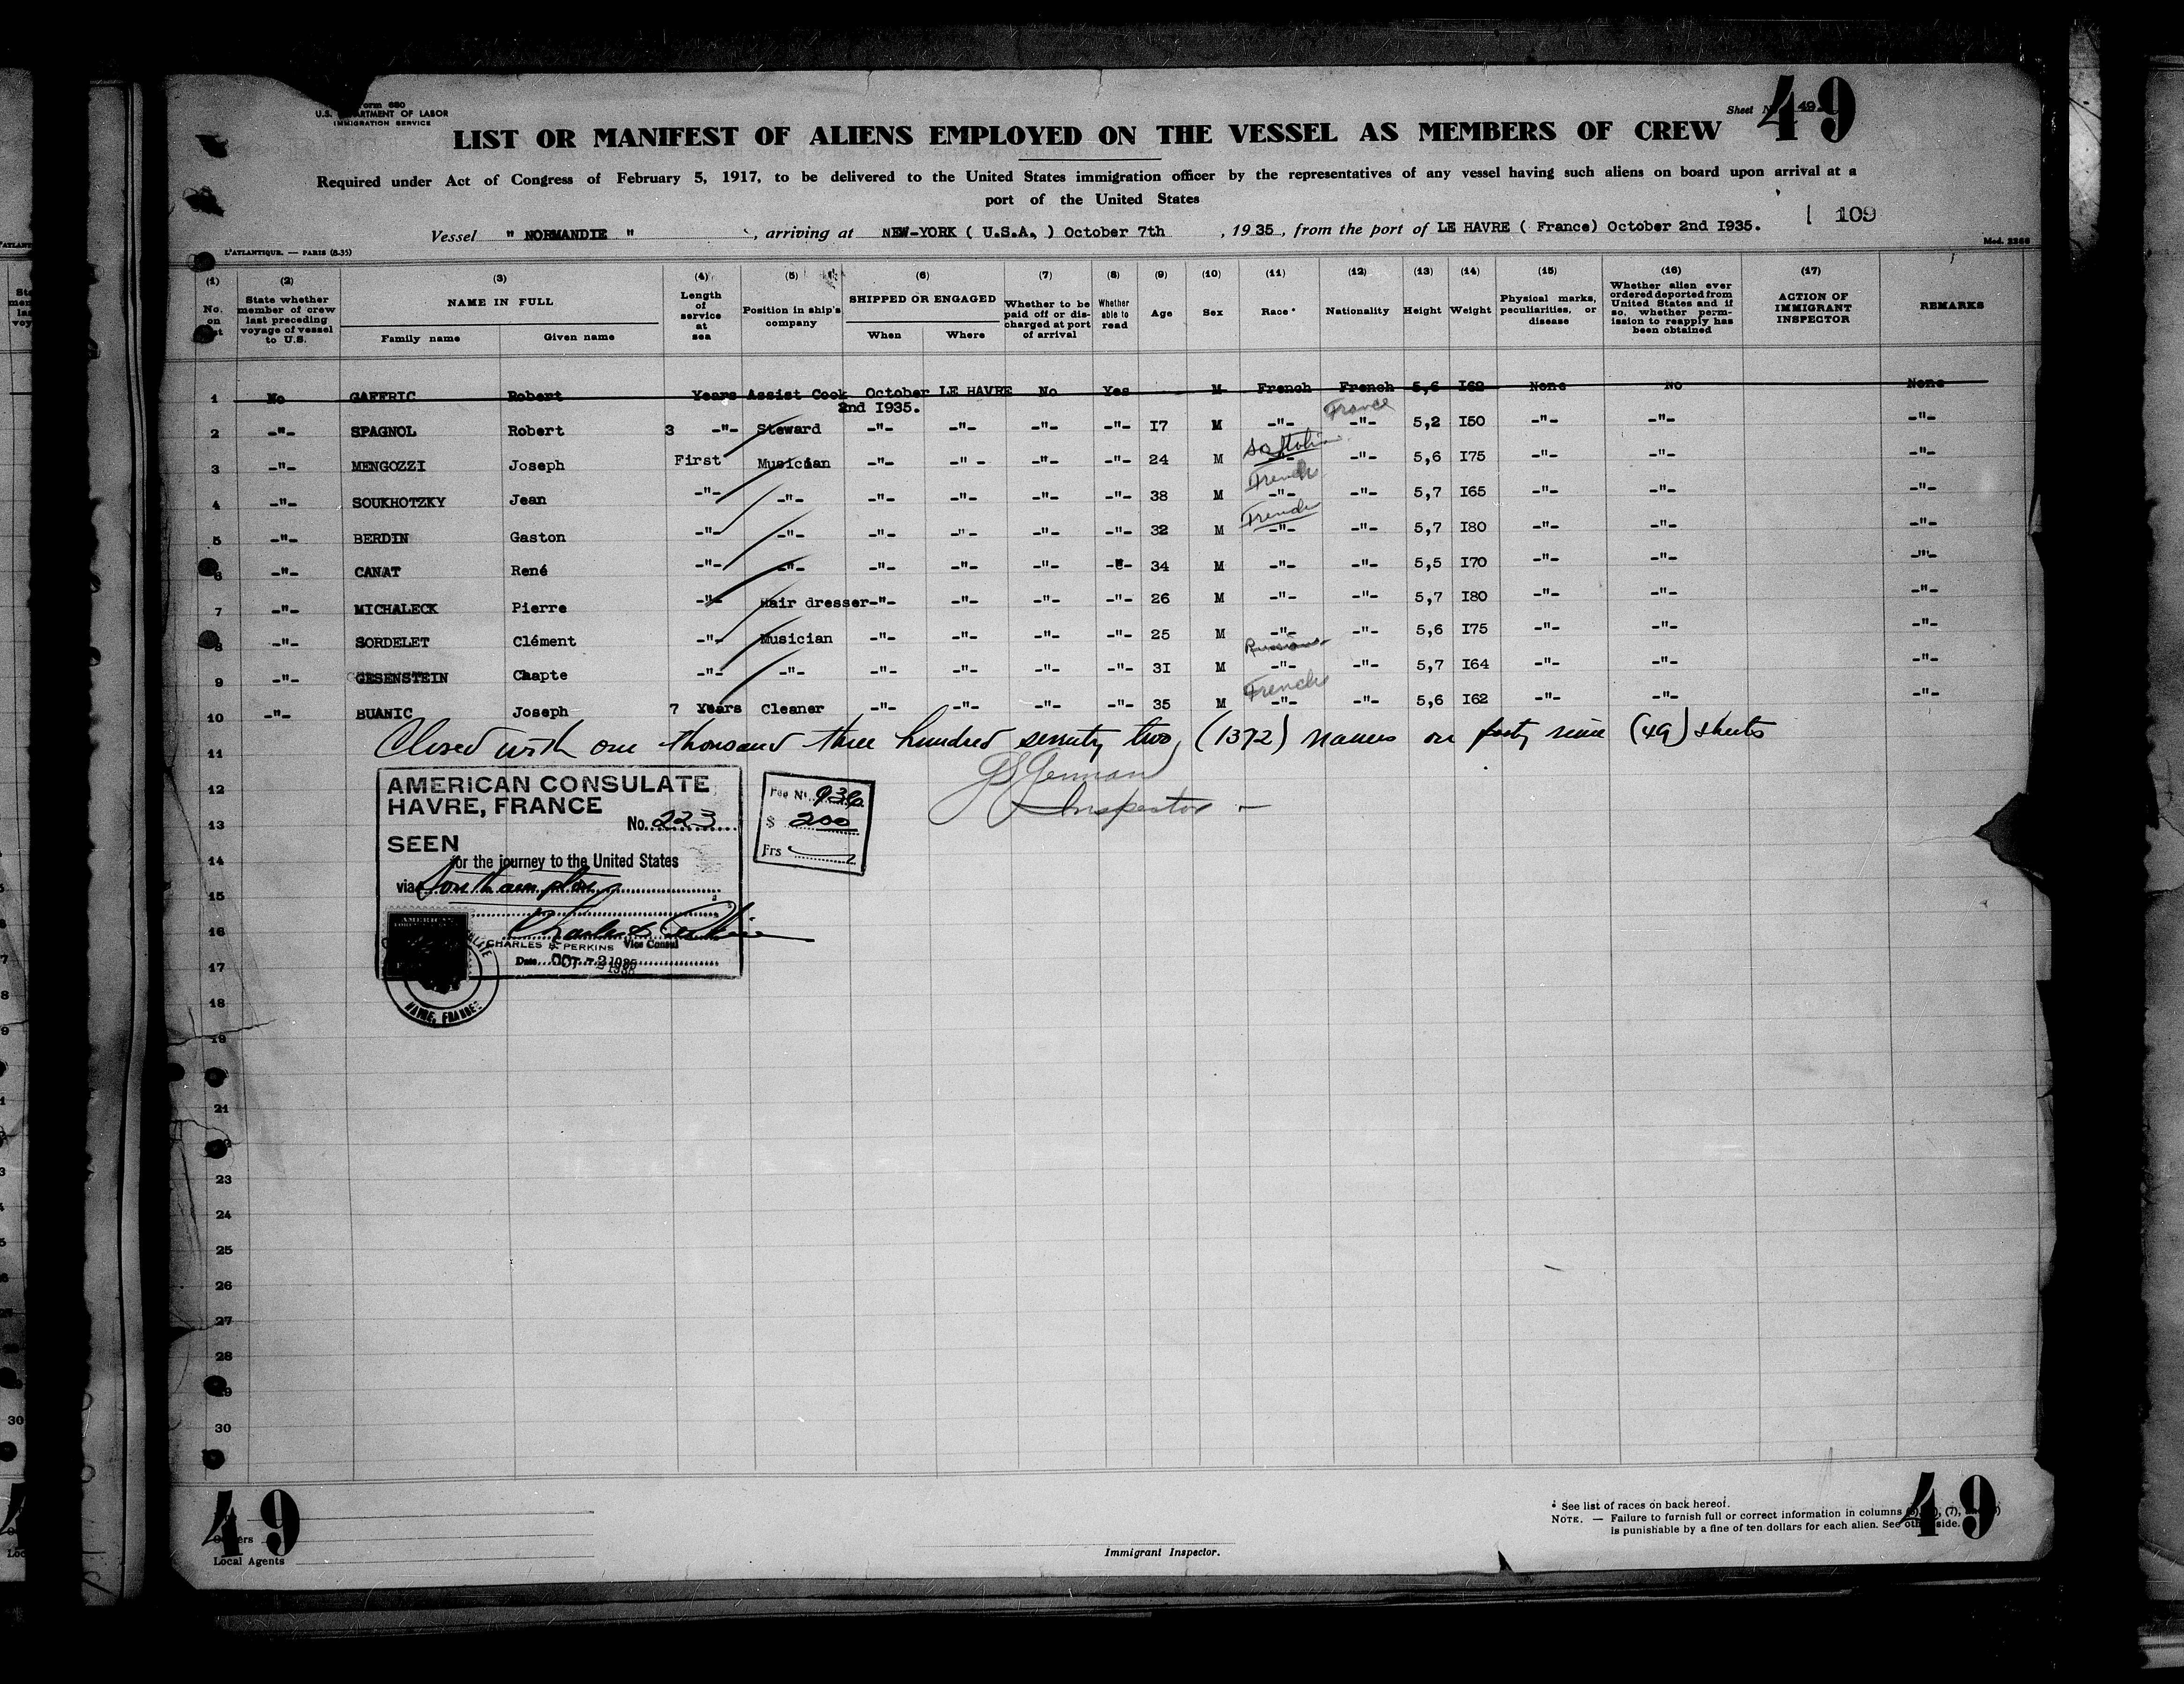 Form 680
U.S. DEPARTMENT OF LABOR
IMMIGRATION SERVICE
Sheet No 49
49
LIST OR MANIFEST OF ALIENS EMPLOYED ON THE VESSEL AS MEMBERS OF CREW
Required under Act of Congress of February 5, 1917, to be delivered to the United States immigration officer by the representatives of any vessel having such aliens on board upon arrival at a
port of the United States
109
Vessel " NORMANDIE ", arriving at NEW-YORK ( U.S.A., ) October 7th, 1935, from the port of LE HAVRE ( France) October 2nd I935.
L'ATLANTIQUE. — PARIS (8-35)
(1) No. on list
(2) State whether member of crew last preceding voyage of vessel to U.S.
(3) NAME IN FULL Family name Given name
(4) Length of service at sea
(5) Position in ship's company
(6) SHIPPED OR ENGAGED When Where
(7) Whether to be paid off or discharged at port of arrival
(8) Whether able to read
(9) Age
(10) Sex
(11) Race*
(12) Nationality
(13) Height
(14) Weight
(15) Physical marks, peculiarities, or disease
(16) Whether alien ever ordered deported from United States and if so, whether permission to reapply has been obtained
(17) ACTION OF IMMIGRANT INSPECTOR
REMARKS
1 No GAFFRIC Robert Years Assist Cook October LE HAVRE No Yes M French French 5,6 I62 None No None
2nd I935.
France
2 -"- SPAGNOL Robert 3 -"- Steward -"- -"- -"- -"- I7 M -"- -"- 5,2 I50 -"- -"- -"-
3 -"- MENGOZZI Joseph First Musician -"- -"- -"- -"- 24 M -"- -"- 5,6 I75 -"- -"- -"-
French
4 -"- SOUKHOTZKY Jean -"- -"- -"- -"- -"- -"- 38 M -"- -"- 5,7 I65 -"- -"- -"-
French
5 -"- BERDIN Gaston -"- -"- -"- -"- -"- -"- 32 M -"- -"- 5,7 I80 -"- -"- -"-
6 -"- CANAT René -"- -"- -"- -"- -"- -"- 34 M -"- -"- 5,5 I70 -"- -"- -"-
7 -"- MICHALECK Pierre -"- Hair dresser -"- -"- -"- -"- 26 M -"- -"- 5,7 I80 -"- -"- -"-
8 -"- SORDELET Clément -"- Musician -"- -"- -"- -"- 25 M -"- -"- 5,6 I75 -"- -"- -"-
Russian
9 -"- GESENSTEIN Chapte -"- -"- -"- -"- -"- -"- 3I M -"- -"- 5,7 I64 -"- -"- -"-
French
10 -"- BUANIC Joseph 7 Years Cleaner -"- -"- -"- -"- 35 M -"- -"- 5,6 I62 -"- -"- -"-
Closed with one thousand three hundred seventy two, (1372) names on forty nine (49) sheets
Inspector
AMERICAN CONSULATE
HAVRE, FRANCE
No. 223
SEEN
for the journey to the United States
via Southampton
CHARLES E. PERKINS Vice Consul
Date OCT - 2 1935
HAVRE, FRANCE
Fee No.
$ 200
Frs
11
12
13
14
15
16
17
18
19
21
23
24
25
26
27
28
30
49
Owners
Local Agents
Immigrant Inspector.
* See list of races on back hereof.
NOTE. — Failure to furnish full or correct information in columns (7),
is punishable by a fine of ten dollars for each alien. See other side.
49